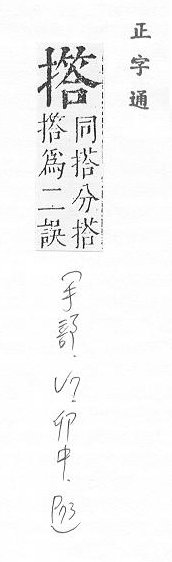 正字通
撘
同搭分搭
撘爲二誤
(手部.卯中.